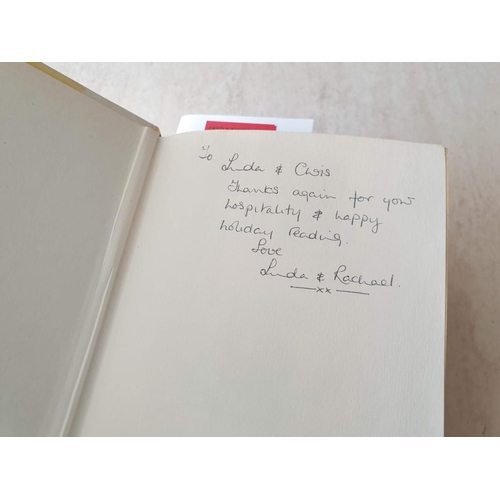 To
Linda & Chris
Thanks again for your
hospitality & happy
holiday reading.
Love
Linda & Rachael.
xx